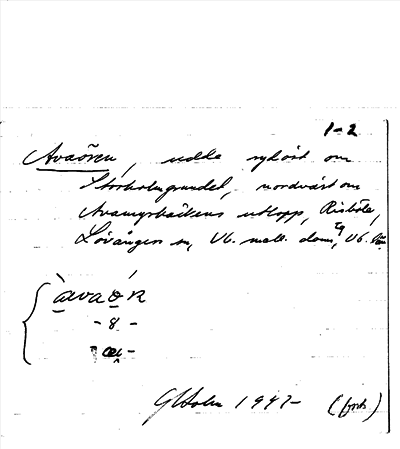 1-2
Avaören, udde sydöst om
Storholmgrundet, nordväst om
Avamyrbäckens utlopp, Risböle,
Lövångers sn, Vb. mell. doms,
avaør
-8-
GHolm 1947
(forts)